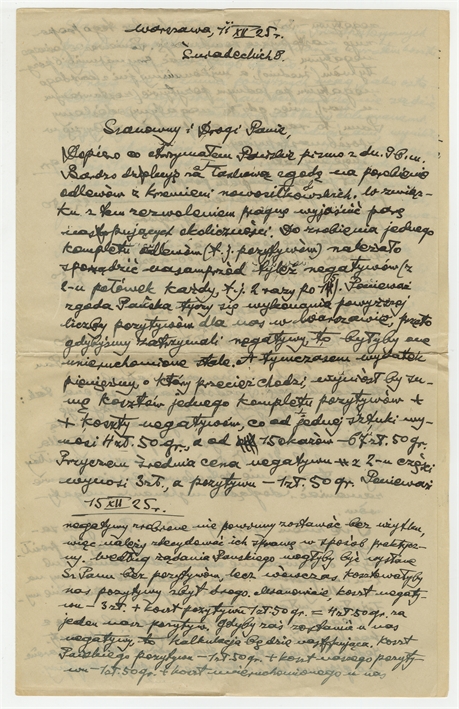 Warszawa, 11 XII 25 r.
Śniadeckich 8.
Szanowny i Drogi Panie,
Dopiero co otrzymałem Pańskie pismo z dn. 9 b.m.
Bardzo dziękuję za łaskawą zgodę na porobienie
odlewów z krzemieni nowosiółkowskich. W związ-
ku z tem zezwoleniem pragnę wyjaśnić parę
następujących okoliczności. Do zrobienia jednego
kompletu odlewów (t.j. pozytywów) należało
sporządzić naprzód tyleż negatywów (z
2-u połówek każdy, t.j. 2 razy po 15). Ponieważ
zgoda Pańska tyczy się wykonania powyższej
liczby pozytywów dla nas w Warszawie, przeto
gdybyśmy zatrzymali negatywy, to byłyby one
unieruchomione stale. A tymczasem wydatek
pieniężny, o który przecież chodzi, wyniósł by su-
mę kosztów jednego kompletu pozytywów +
+ koszty negatywów, co od jednej sztuki wy-
nosi 4 zł. 50 gr., a od 15 okazów – 67 zł. 50 gr.
Przyczem średnia cena negatywu z 2-u części
wynosi 3 zł., a pozytywu – 1 zł. 50 gr. Ponieważ
15 XII 25 r.
negatywy zrobione nie powinny zostawać bez użytku,
więc należy zdecydować ich sprawę w sposób praktycz-
ny. Według żądania Pańskiego mogłyby być wysłane
Sz. Panu bez pozytywów, lecz wówczas kosztowałyby
nas pozytywy zbyt drogo. Mianowicie koszt negaty-
wu – 3 zł. + koszt pozytywu 1 zł. 50 gr. = 4 zł. 50 gr. za
jeden nasz pozytyw, gdyby zaś zostały u nas
negatywy, to kalkulacja będzie następująca. Koszt
Pańskiego pozytywu – 1 zł. 50 gr. + koszt naszego pozyty-
wu – 1 zł. 50 gr. + koszt unieruchomionego u nas